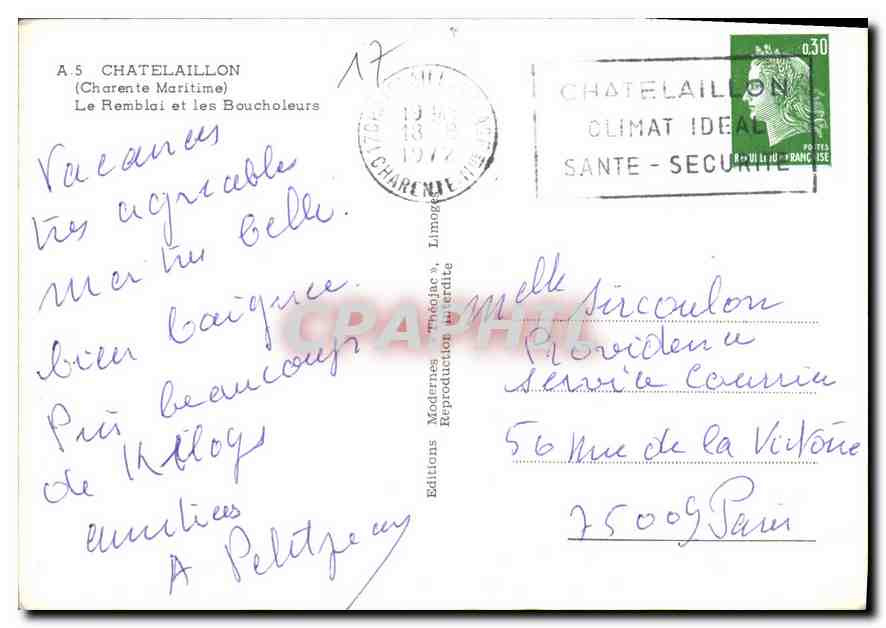 A.5 CHATELAILLON
(Charente Maritime)
Le Remblai et les Boucholeurs
17
19 H
18
1972
CHARENTE Mme
CHATELAILLON
CLIMAT IDEAL
SANTE - SECURITE
0,30
POSTES
REPUBLIQUE FRANÇAISE
Vacances
très agréables
Mer très belle.
bien baignée.
Pris beaucoup
de Kilogs
amitiés
A Petitjean
Editions Modernes « Théojac », Limoges
Reproduction interdite
CPAPHIL
Melle Sircoulon
Providence
Service Courrier
56 Rue de la Victoire
75009 Paris